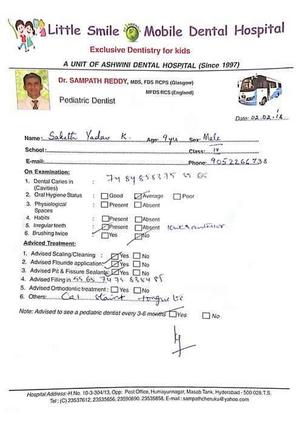 Little Smile Mobile Dental Hospital
Exclusive Dentistry for kids
A UNIT OF ASHWINI DENTAL HOSPITAL (Since 1997)
Dr. SAMPATH REDDY, MDS, FDS RCPS (Glasgow)
MFDS RCS (England)
Pediatric Dentist
Date: 02.02.16
Name: Saketh Yadav K. Age: 9yrs Sex: Male
School: Class: IV
E-mail: Phone: 9052266738
On Examination:
1. Dental Caries in (Cavities) : 74 84 85 83 75 55 65
2. Oral Hygiene Status : Good Average Poor
3. Physiological Spaces : Present Absent
4. Habits : Present Absent
5. Irregular teeth : Present Absent
6. Brushing twice : Yes No
Adviced Treatment:
1. Advised Scaling/Cleaning : Yes No
2. Advised Flouride application: Yes No
3. Advised Pit & Fissure Sealants: Yes No
4. Advised Filling in: 55 65 74 75 83 84 85
5. Advised Orthodontic treatment : Yes No
6. Others:
Note: Advised to see a pediatric dentist every 3-6 months Yes No
Hospital Address: H.No. 10-3-304/13, Opp: Post Office, Humayunnagar, Masab Tank, Hyderabad - 500 028.T.S.
Tel: (C) 23537612, 23535656, 23550690, 23535858, E-mail: sampathcheruku@yahoo.com